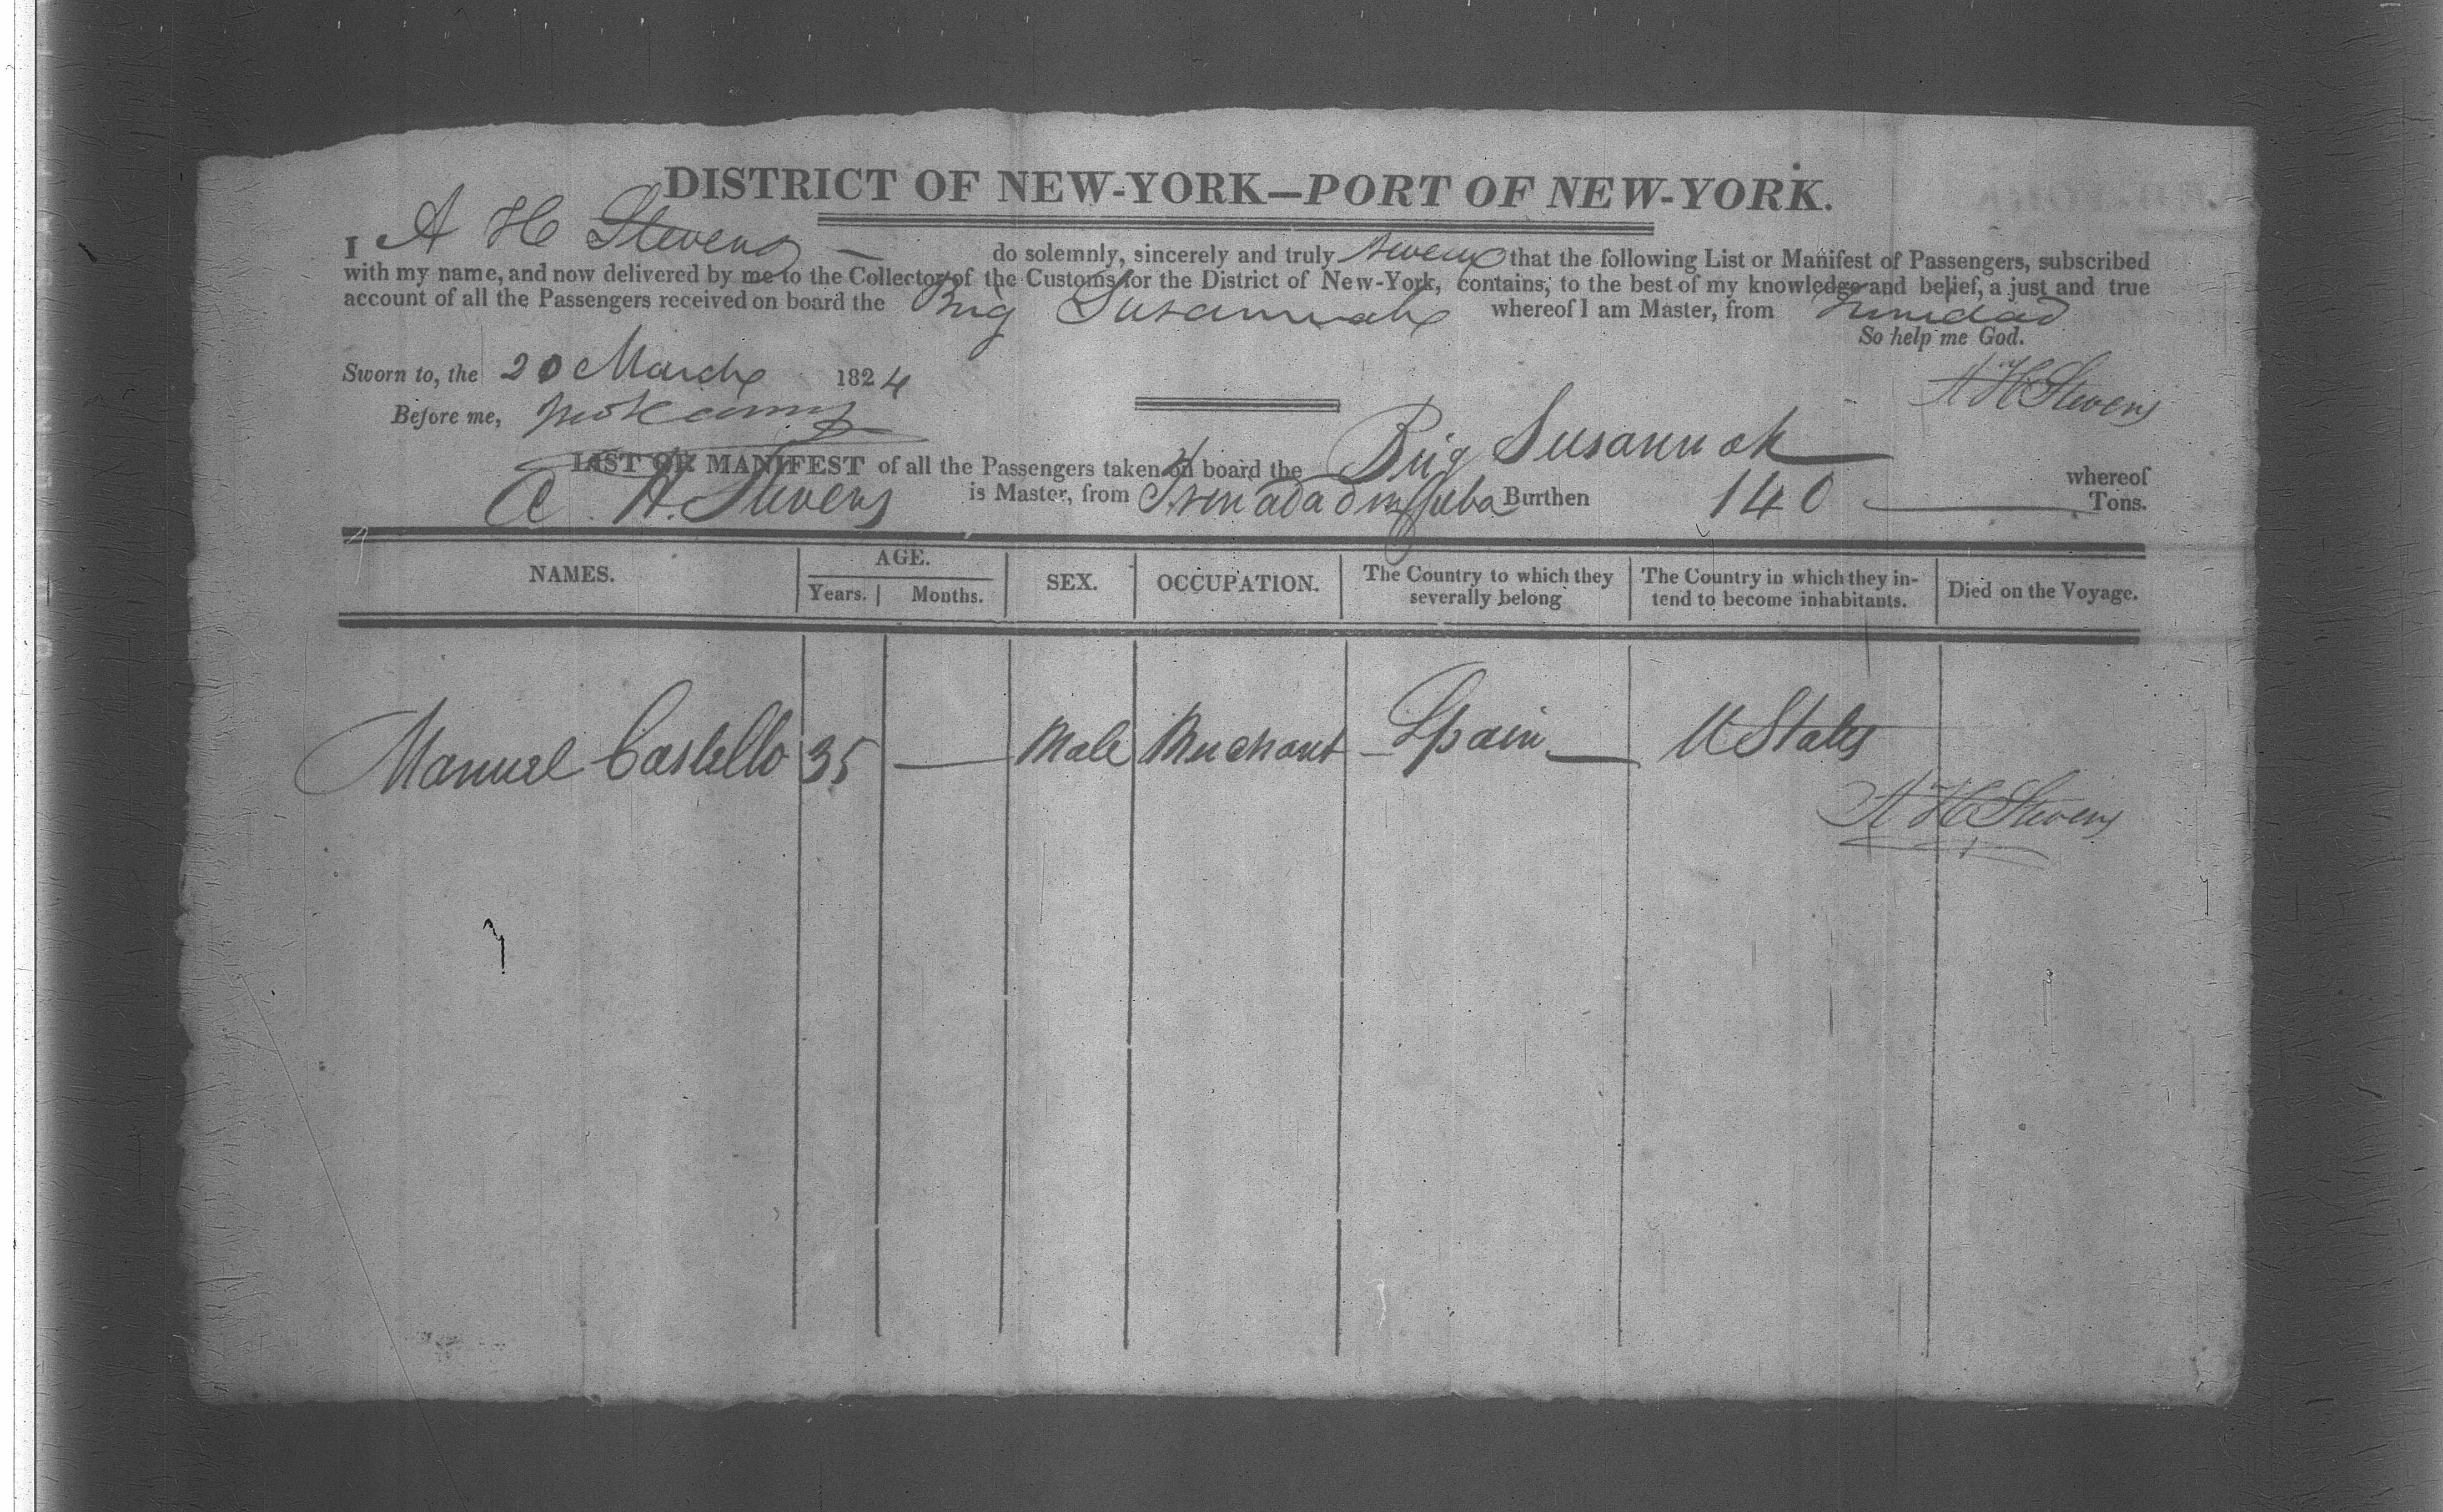 DISTRICT OF NEW-YORK—PORT OF NEW-YORK.
I A H Stevens — do solemnly, sincerely and truly swear that the following List or Manifest of Passengers, subscribed
with my name, and now delivered by me to the Collector of the Customs for the District of New-York, contains, to the best of my knowledge and belief, a just and true
account of all the Passengers received on board the Brig Susannah whereof I am Master, from Trinidad
So help me God.
Sworn to, the 20 March 1824
A H Stevens
Before me,
LIST OR MANIFEST of all the Passengers taken on board the Brig Susannah whereof
A. H. Stevens is Master, from Trinadad in Cuba Burthen 140 Tons.
NAMES. AGE. Years. Months. SEX. OCCUPATION. The Country to which they severally belong The Country in which they intend to become inhabitants. Died on the Voyage.
Manuel Castello 35 — Male Merchant — Spain — U States
A H Stevens